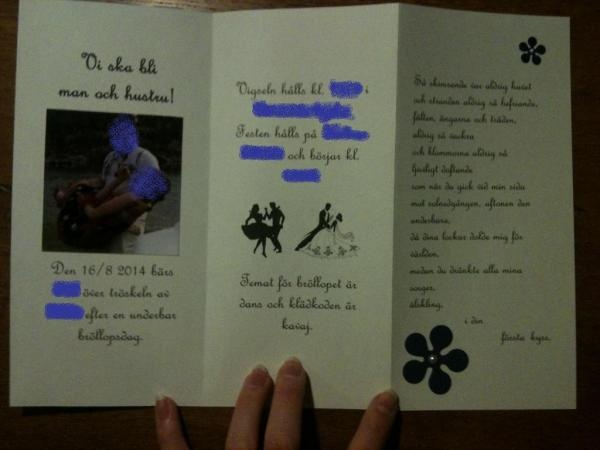 Vi ska bli
man och hustru!
Den 16/8 2014 bärs
över tröskeln av
efter en underbar
bröllopsdag.
Vigseln hålls kl. i
Festen hålls på
och börjar kl.
Temat för bröllopet är
dans och klädkoden är
kavaj.
Så skimrande var aldrig havet
och stranden aldrig så befriande,
fälten, ängarna och träden,
aldrig så vackra
och blommorna aldrig så
ljuvligt doftande
som när du gick vid min sida
mot solnedgången, aftonen den
underbara,
då dina lockar dolde mig för
världen,
medan du dränkte alla mina
sorger,
älskling,
i din
första kyss.